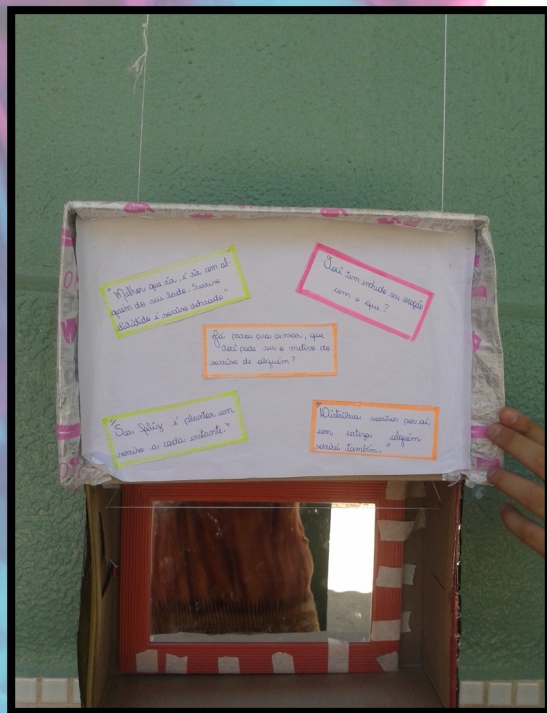 "Melhor que rir, é rir com al-
guém do seu lado. Sorriso
dividido é sorriso dobrado."
Você tem enchido seu coração
com o que?
Já parou pra pensar, que
você pode ser o motivo do
sorriso de alguém?
"Ser feliz é plantar um
sorriso a cada instante."
"Distribua sorrisos por aí,
com certeza alguém
sorrirá também."